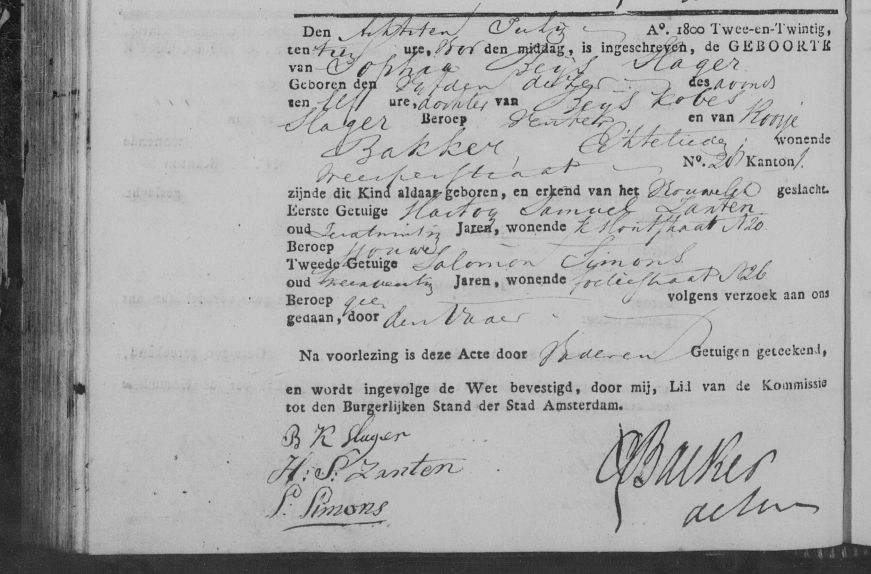 Den Achtsten July A°. 1800 Twee-en-Twintig,
ten tien ure, Voor den middag, is ingeschreven, de GEBOORTE
van Sophia Beijs Slager
Geboren den dezer des avonds
ten elf ure, dochter van Beijs Kobes
Slager Beroep en van Roosje
Bakker Echtelieden wonende
weesperstraat N°. 20 Kanton 1.
zijnde dit Kind aldaar geboren, en erkend van het Vrouwelyk geslacht.
Eerste Getuige Hartog Samuel Zanten
oud Jaren, wonende k Houtstraat N 20
Beroep
Tweede Getuige Salomon Simons
oud Jaren, wonende N 26
Beroep geen volgens verzoek aan ons
gedaan, door den Vader
Na voorlezing is deze Acte door Vader en Getuigen geteekend,
en wordt ingevolge de Wet bevestigd, door mij, Lid van de Kommissie
tot den Burgerlijken Stand der Stad Amsterdam.
B K Slager
H: S: Zanten
S. Simons
Backer